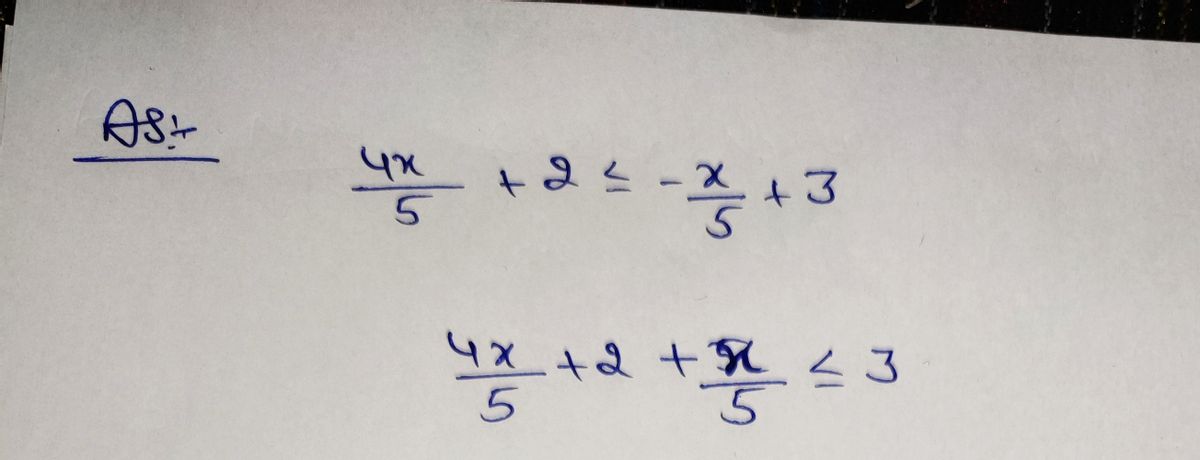 AS:-
4x/5 + 2 ≤ -x/5 + 3
4x/5 + 2 + x/5 ≤ 3